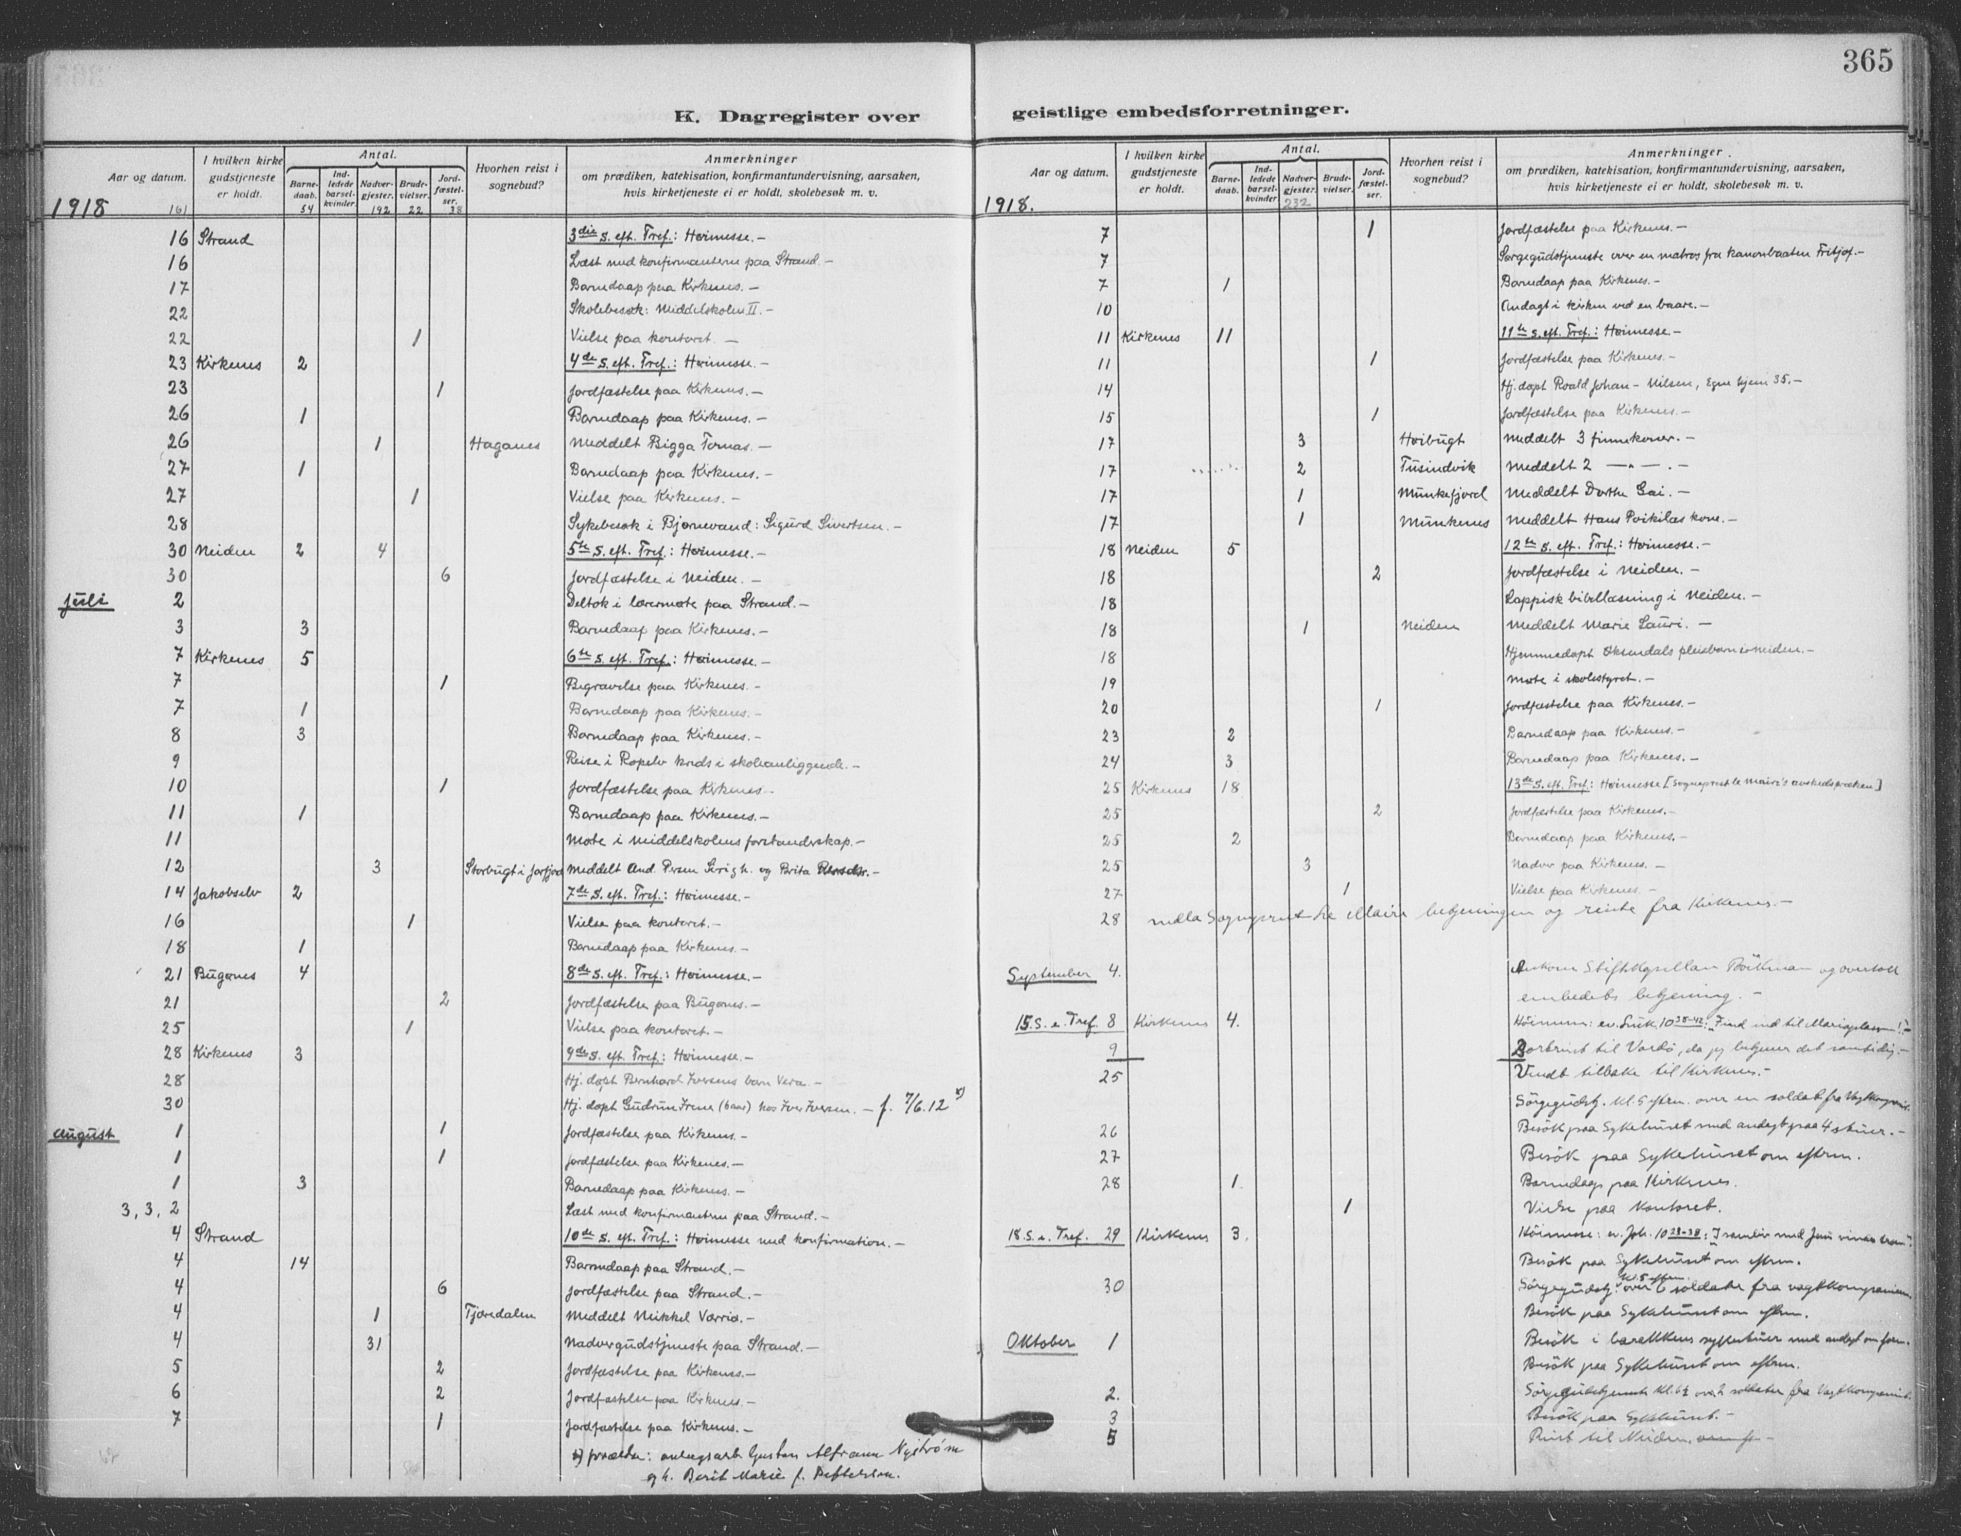 365
K. Dagregister over
Aar og datum.
I hvilken kirke gudstjeneste er holdt.
Antal.
Barne-daab.
Ind-ledede barsel-kvinder.
Nadver-gjester.
Brude-vielser.
Jord-fæstel-ser.
Hvorhen reist i sognebud?
Anmerkninger
om prædiken, katekisation, konfirmantundervisning, aarsaken,
hvis kirketjeneste ei er holdt, skolebesøk m. v.
1918 161 54 192 22 38
16 Strand 3die S. eft. Tref.: Høimesse.—
16 Læst med konfirmanterne paa Strand.—
17 Barnedaap paa Kirkenes.—
22 Skolebesøk: Middelskolen II.—
22 1 Vielse paa kontoret.—
23 Kirkenes 2 4de S. eft. Tref.: Høimesse.—
23 1 Jordfæstelse paa Kirkenes.—
26 1 Barnedaap paa Kirkenes.—
26 1 Haganes Meddelt Bigga Tomas.—
27 1 Barnedaap paa Kirkenes.—
27 1 Vielse paa Kirkenes.—
28 Sykebesøk i Bjørnevand: Sigurd Sivertsen.—
30 Neiden 2 4 5te S. eft. Tref: Høimesse.—
30 6 Jordfæstelse i Neiden.—
Juli 2 Deltok i lærermøte paa Strand.—
3 3 Barnedaap paa Kirkenes.—
7 Kirkenes 5 6te S. eft. Tref.: Høimesse.—
7 1 Begravelse paa Kirkenes.—
7 1 Barnedaap paa Kirkenes.—
8 3 Barnedaap paa Kirkenes.—
9 Reise i Ropelv kreds i skoleanliggende.—
10 1 Jordfæstelse paa Kirkenes.—
11 1 Barnedaap paa Kirkenes.—
11 Møte i Middelskolens forstanderskap.—
12 3 Storbugt i Jarfjord Meddelt And. Persen og Brita
14 Jakobselv 2 7de S. eft. Tref.: Høimesse.—
16 1 Vielse paa kontoret.—
18 1 Barnedaap paa Kirkenes.—
21 Bugønes 4 8de S. eft. Tref.: Høimesse.—
21 2 Jordfæstelse paa Bugønes.—
25 1 Vielse paa kontoret.—
28 Kirkenes 3 9de S. eft. Tref.: Høimesse.—
28 Hj. døpt Bernhard Iversens barn Vera.—
30 Hj. døpt Gudrun Irene (baar) hos Iver Iversen.— f. 7/6.12 x)
August 1 1 Jordfæstelse paa Kirkenes.—
1 1 Jordfæstelse paa Kirkenes.—
1 3 Barnedaap paa Kirkenes.—
3, 3, 2 Læst med konfirmanterne paa Strand.—
4 Strand 10de S. eft. Tref.: Høimesse med konfirmation.—
4 14 Barnedaap paa Strand.—
4 6 Jordfæstelse paa Strand.—
4 1 Tjæredalen Meddelt Mikkel
4 31 Nadvergudstjeneste paa Strand.—
5 2 Jordfæstelse paa Kirkenes.—
6 2 Jordfæstelse paa Kirkenes.—
7 1 Jordfæstelse paa Kirkenes.—
x) forældre: anlægsarb. Gustav Nyström
og h. Berit Marie f.
geistlige embedsforretninger.
Aar og datum.
I hvilken kirke gudstjeneste er holdt.
Antal.
Barne-daab.
Ind-ledede barsel-kvinder
Nadver-gjester.
Brude-vielser.
Jord-fæstel-ser.
Hvorhen reist i sognebud?
Anmerkninger.
om prædiken, katekisation, konfirmantundervisning, aarsaken,
hvis kirketjeneste ei er holdt, skolebesøk m. v.
1918. 232
7 1 Jordfæstelse paa Kirkenes.—
7 Sørgegudstjeneste over en matros fra kanonbaaten Fritjof.—
7 1 Barnedaap paa Kirkenes.—
10 Andagt i kirken ved en baare.—
11 Kirkenes 11 11te S. eft. Tref.: Høimesse.—
11 1 Jordfæstelse paa Kirkenes.—
14 Hj. døpt Roald Johan Nilsen, Egne hjem 35.—
15 1 Jordfæstelse paa Kirkenes.—
17 3 Høibugt Meddelt 3 finnekoner.—
17 2 Tusindvik Meddelt 2 —"—.—
17 1 Munkefjord Meddelt Dorthe Gai.—
17 1 Munkenes Meddelt Hans kone.—
18 Neiden 5 12te S. eft. Tref: Høimesse.—
18 2 Jordfæstelse i Neiden.—
18 Lappisk bibellæsning i Neiden.—
18 1 Neiden Meddelt Marie Lauri.—
18 Hjemmedøpt pleiebarn i Neiden.—
19 Møte i skolestyret.—
20 1 Jordfæstelse paa Kirkenes.—
23 2 Barnedaap paa Kirkenes.—
24 3 Barnedaap paa Kirkenes.—
25 Kirkenes 18 13de S. eft. Tref: Høimesse [Sogneprest le Maire's avskedspræken]
25 2 Jordfæstelse paa Kirkenes.—
25 2 Barnedaap paa Kirkenes.—
25 3 Nadver paa Kirkenes.—
27 1 Vielse paa Kirkenes.—
28 nedla Sogneprest le Maire betjeningen og reiste fra Kirkenes.—
September 4. Ankom Stiftskapellan og overtok
embedets betjening.—
15. S. e. Tref. 8 Kirkenes 4. Høimesse: ev. Luk. 10 38-42:
9 Bortreist til Vardö, da jeg betjener det samtidig.—
25 Vendt tilbake til Kirkenes.—
Sörgegudstj. kl. 5 eftm. over en soldat fra Vagtkompaniet.
26 Besök paa Sykehuset med andagt paa 4 stuer.—
27 Besök paa Sykehuset om eftm.
28 1. Barnedaap paa Kirkenes.
1 Vielse paa kontoret.
18. S. e. Tref. 29 Kirkenes 3. Höimesse: ev. Joh.
Besök paa Sykehuset om eftm.
30 Sörgegudstj. kl. 5 eftm. over 6 soldater fra vagtkompaniet.
Besök paa Sykehuset om eftm.
Oktober 1 Besök i barakkens sykestuer med andagt om form.
Besök paa Sykehuset om eftm.
2. Sörgegudstjeneste over 2 soldater fra Vagtkompaniet.
3 Besök paa Sykehuset.—
5 Reist til Neiden